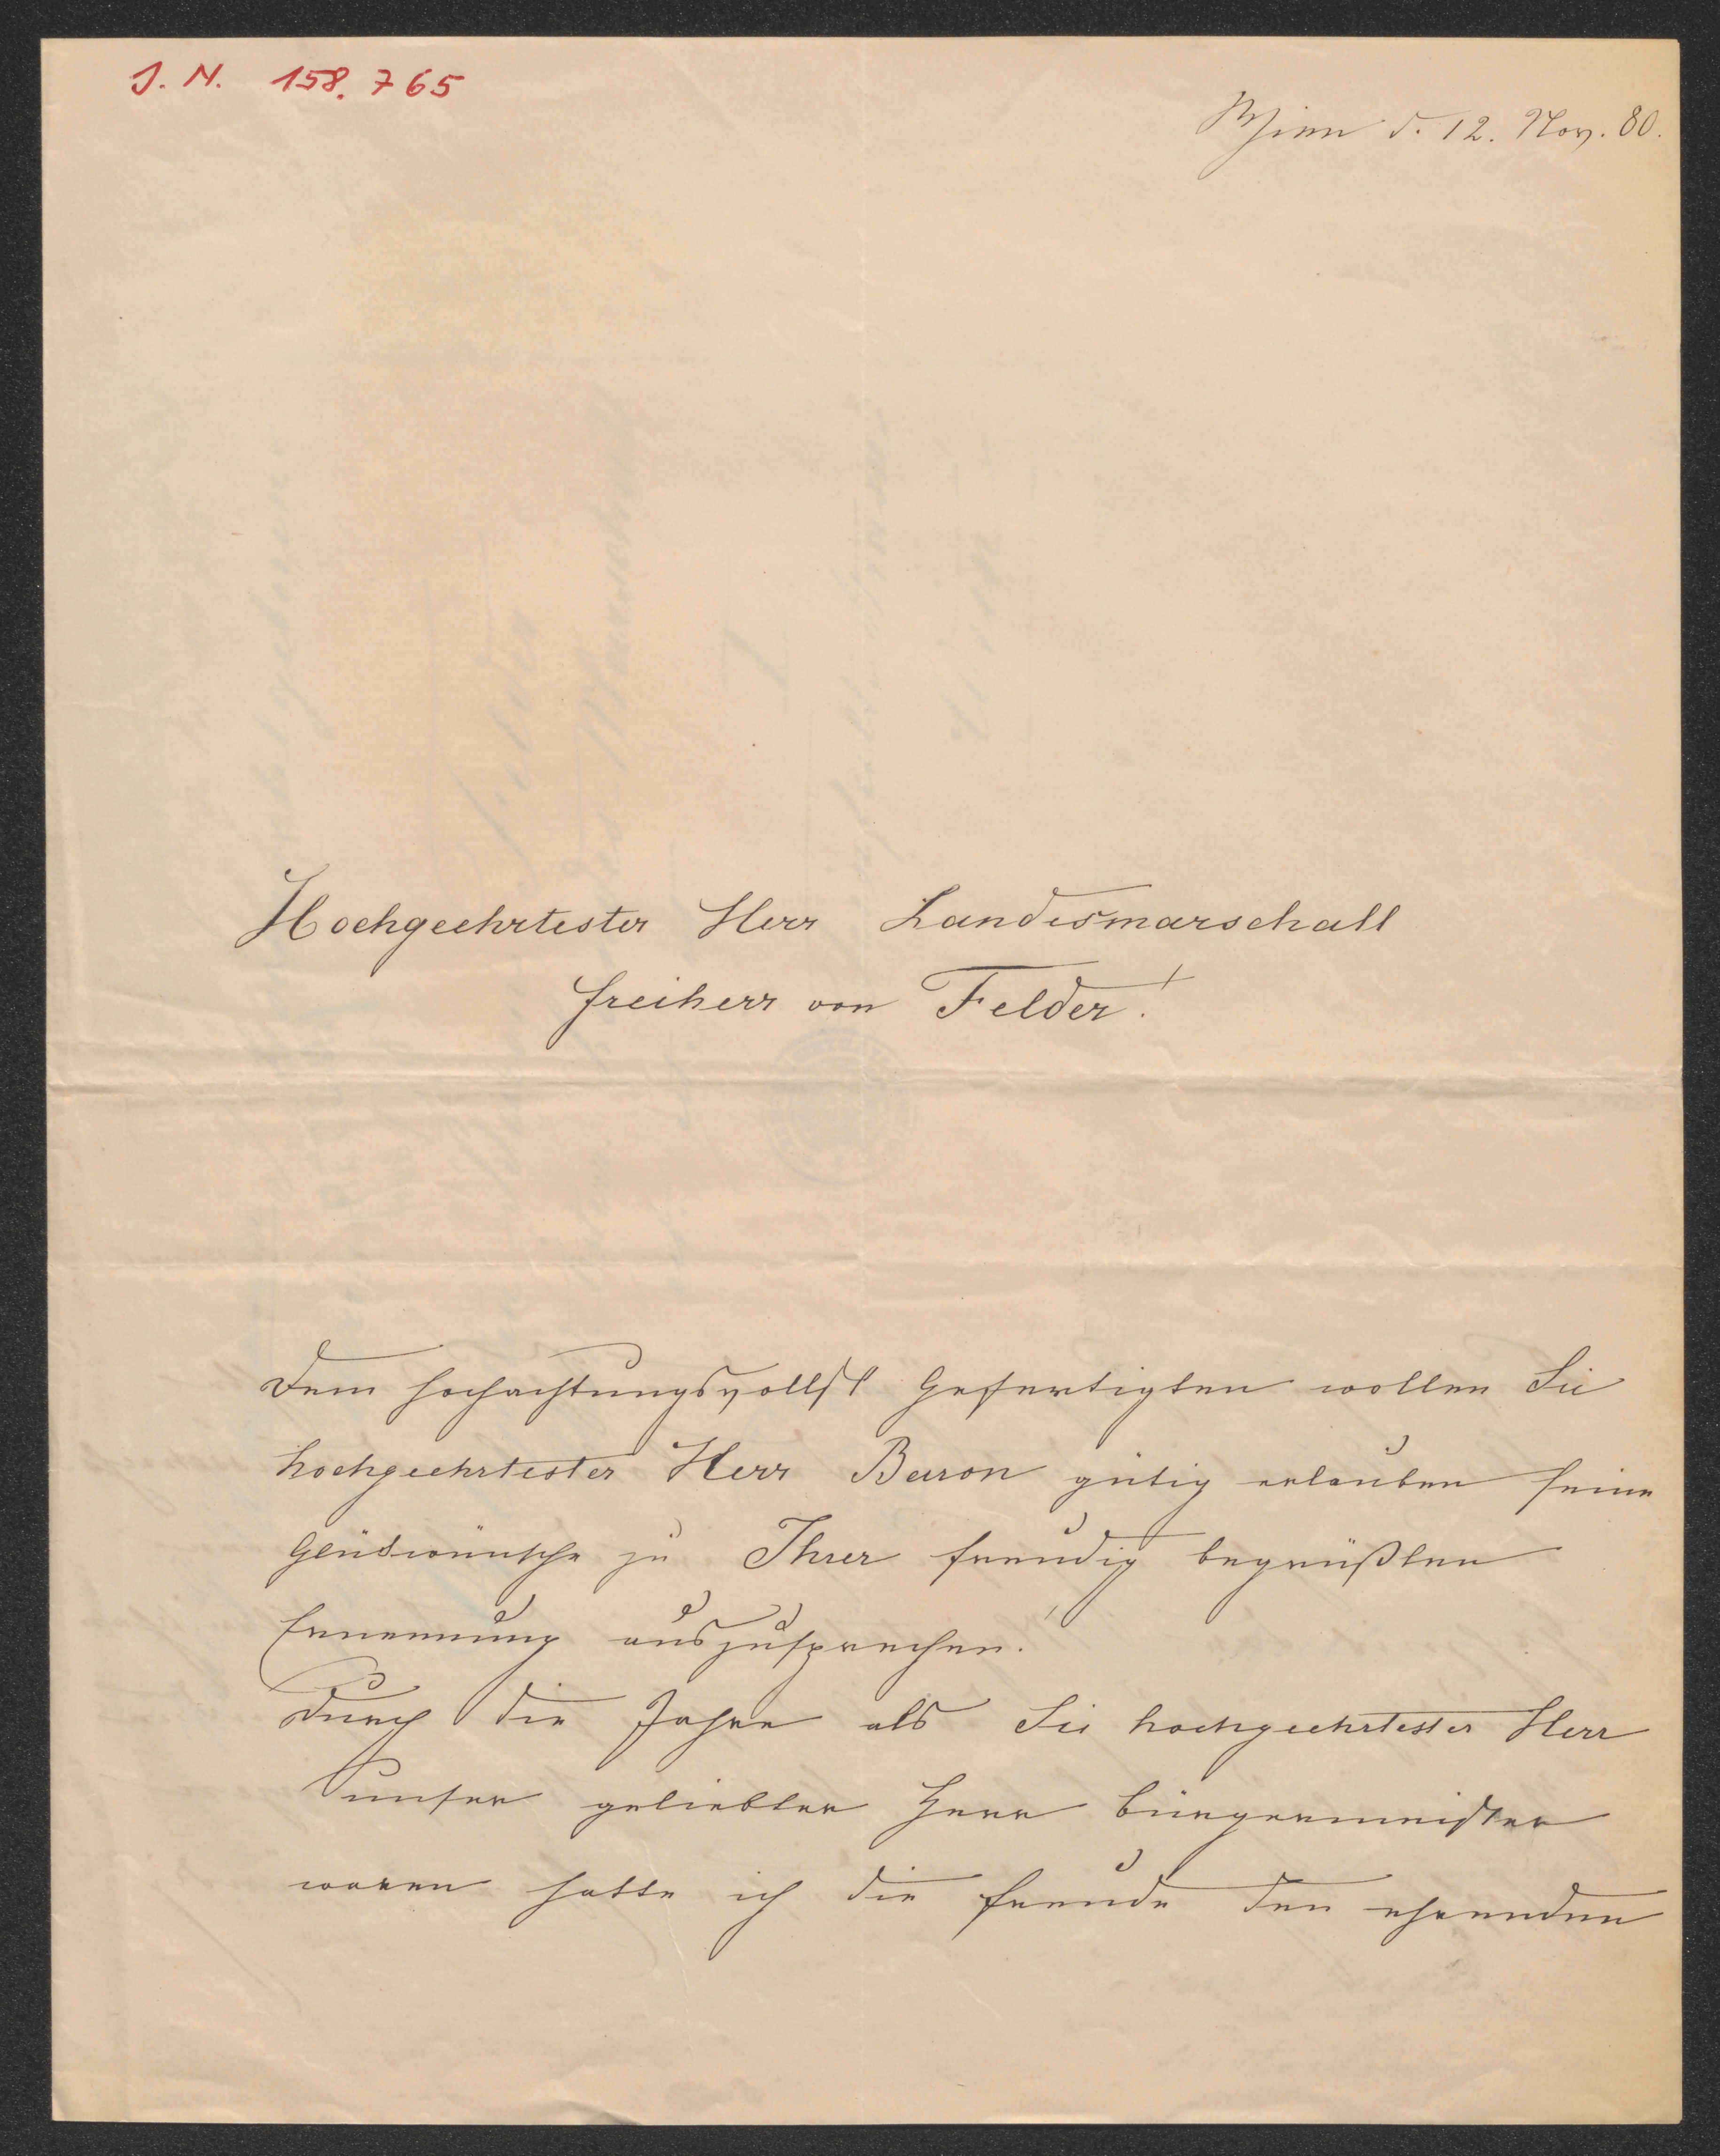 J. N. 158.765
Wien d. 12. Nov. 80.
Hochgeehrtester Herr Landesmarschall
Freiherr von Felder!
Dem hochachtungsvollst Gefertigten wollen Sie
hochgeehrtester Herr Baron gütig erlauben seine
Glückwünsche zu Ihrer freudig begrüßten
Ernennung auszusprechen.
Durch die Jahre als Sie hochgeehrtester Herr
unser geliebter Herr Bürgermeister
waren hatte ich die Freude den ehrenden